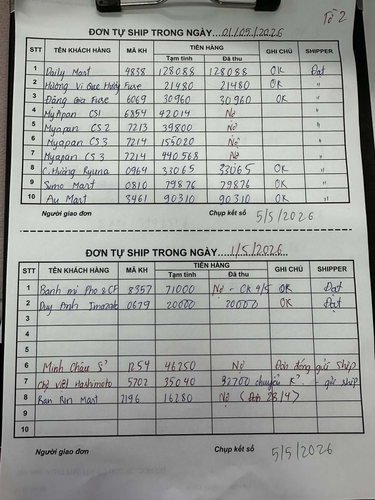 Tờ 2
ĐƠN TỰ SHIP TRONG NGÀY...01/05/2026
STT TÊN KHÁCH HÀNG MÃ KH TIỀN HÀNG GHI CHÚ SHIPPER
Tạm tính Đã thu
1 Daily Mart 4838 128088 128088 OK Đạt
2 Hương Vị Quê Hương Fuse 21480 21480 OK "
3 Đặng Gia Fuse 6069 30960 30960 OK "
4 MyApan CS1 6854 42014 Nợ "
5 Myapan CS2 7213 39800 Nợ "
6 Myapan CS3 7214 155020 Nợ "
7 Myapan CS3 7214 440568 Nợ "
8 C.Hường Kyuna 0964 33065 33065 OK "
9 Sumo Mart 0810 79876 79876 OK "
10 Au Mart 3461 90310 90310 OK "
Người giao đơn Chụp kết sổ 5/5/2026
ĐƠN TỰ SHIP TRONG NGÀY...1/5/2026
STT TÊN KHÁCH HÀNG MÃ KH TIỀN HÀNG GHI CHÚ SHIPPER
Tạm tính Đã thu
1 Bánh mì Pho & CF 8357 71000 Nợ - CK 4/5 OK Đạt
2 Duy Anh 0679 20000 20000 OK Đạt
3
4
5
6 Minh Châu 1254 46250 Nợ Đơn đóng gửi ship
7 Chị Việt Hashimoto 5702 35040 32700 chuyển K - gửi ship
8 Ran Ren Mart 7196 16280 Nợ (Đơn 28/4)
9
10
Người giao đơn Chụp kết sổ 5/5/2026